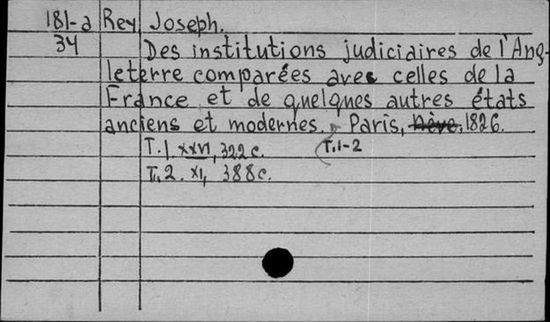 181-a Rey, Joseph.
34 Des institutions judiciaires de l'Ang-
leterre comparées avec celles de la
France et de quelques autres états
anciens et modernes. - Paris, Nève, 1826.
T.1-2
T.1. XXVI, 322 c.
T.2. XI, 388 c.